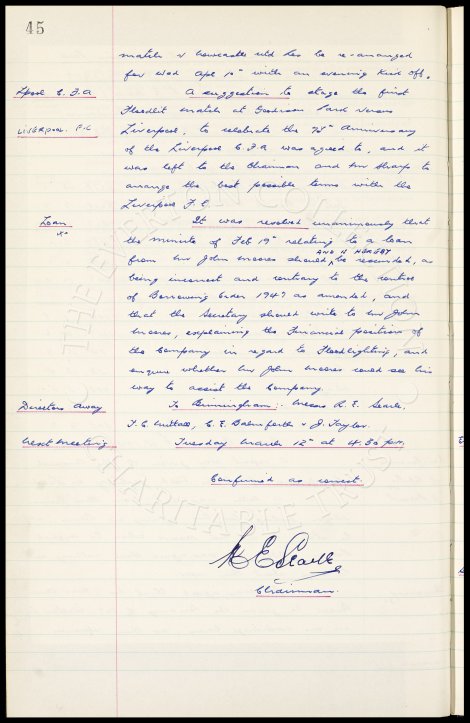 45
match v Newcastle Utd has be re-arranged
for Wed Apl 10th with an evening kick off.
Lpool C.F.A
LIVERPOOL. F.C
A suggestion to stage the first
Floodlit match at Goodison Park versus
Liverpool, to celebrate the 75th Anniversary
of the Liverpool C.F.A was agreed to, and it
was left to the Chairman and Mr Sharp to
arrange the best possible terms with the
Liverpool F.C.
Loan
It was resolved unanimously that
the minute of Feb 19th relating to a loan
AND IS HEREBY
from Mr John Moores should be rescinded, as
being incorrect and contrary to the control
of Borrowing Order 1947 as amended, and
that the Secretary should write to Mr John
Moores, explaining the Financial position of
the Company in regard to Floodlighting, and
enquire whether Mr John Moores could see his
way to assist the Company.
Directors Away
To Birmingham:- Messrs R.E. Searle,
T.C. Nuttall, C.E. Balmforth & J. Taylor.
Next Meeting
Tuesday March 12th at 4.30 p.m.
Confirmed as correct.
R E Searle
Chairman.
THE EVERTON COLLECTION
CHARITABLE TRUST